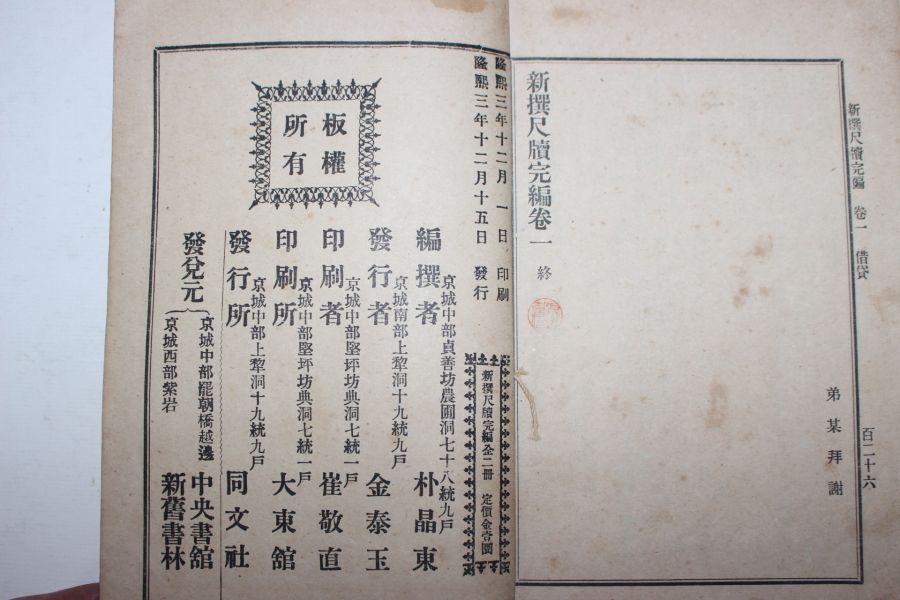 新撰尺牘完編 卷一 借貸 百二十六
弟某拜謝
新撰尺牘完編卷一 終
隆熙三年十二月一日 印刷
隆熙三年十二月十五日 發行
板權
所有
新撰尺牘完編全二冊 定價金壹圜
編撰者 京城中部貞善坊農圃洞七十八統九戶 朴晶東
發行者 京城南部上犂洞十九統九戶 金泰玉
印刷者 京城中部堅坪坊典洞七統一戶 崔敬直
印刷所 京城中部堅坪坊典洞七統一戶 大東舘
發行所 京城中部上犂洞十九統九戶 同文社
發兌元
京城中部罷朝橋越邊 中央書舘
京城西部紫岩 新舊書林